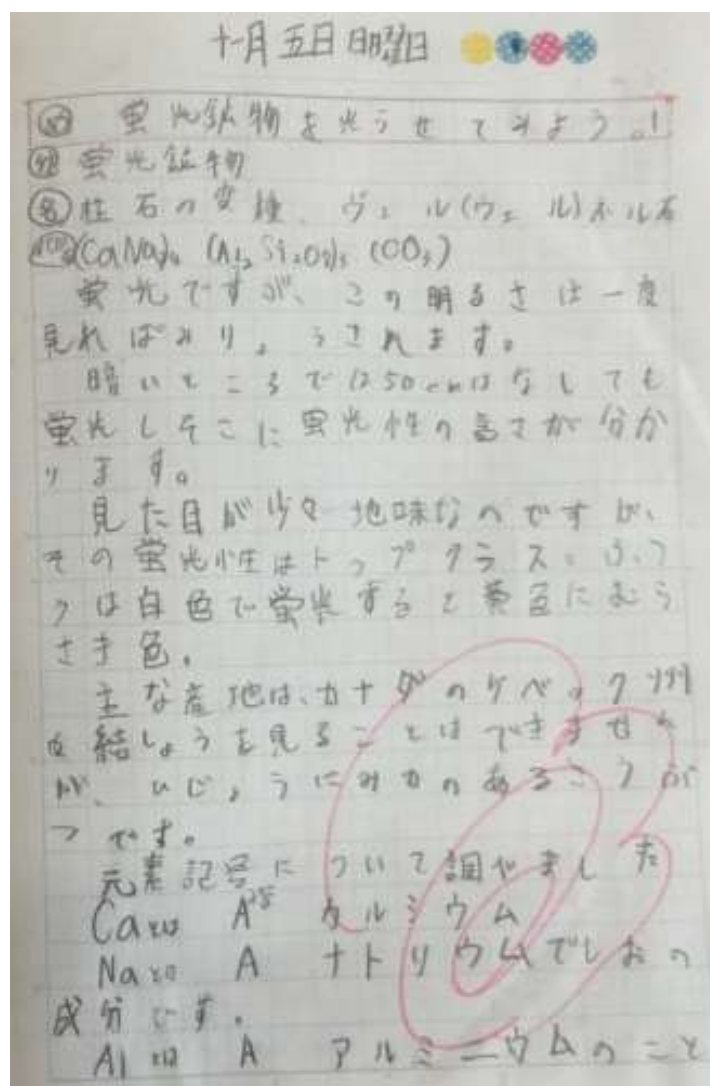 十一月五日日曜日
め 蛍光鉱物を光らせてみよう。!
蛍光鉱物
名 柱石の変種、ヴェル(ウェル)ネル石
(CaNa)4 (Al2Si2O8)3 (CO3)
蛍光ですが、この明るさは一度
見ればみりょうされます。
暗いところで1250cmはなしても
蛍光しそこに蛍光性の高さが分か
ります。
見た目が少々地味なのですが、
その蛍光性はトップクラス。ふつ
うは白色で蛍光すると黄色にむら
さき色。
主な産地は、カナダのケベック州
結しょうを見ることはできません
が、ひじょうにみカのあるこうぶ
つです。
元素記号について調やました
Caとは A カルシウム
Naとは A ナトリウムでしおの
成分です。
Alとは A アルミニウムのこと